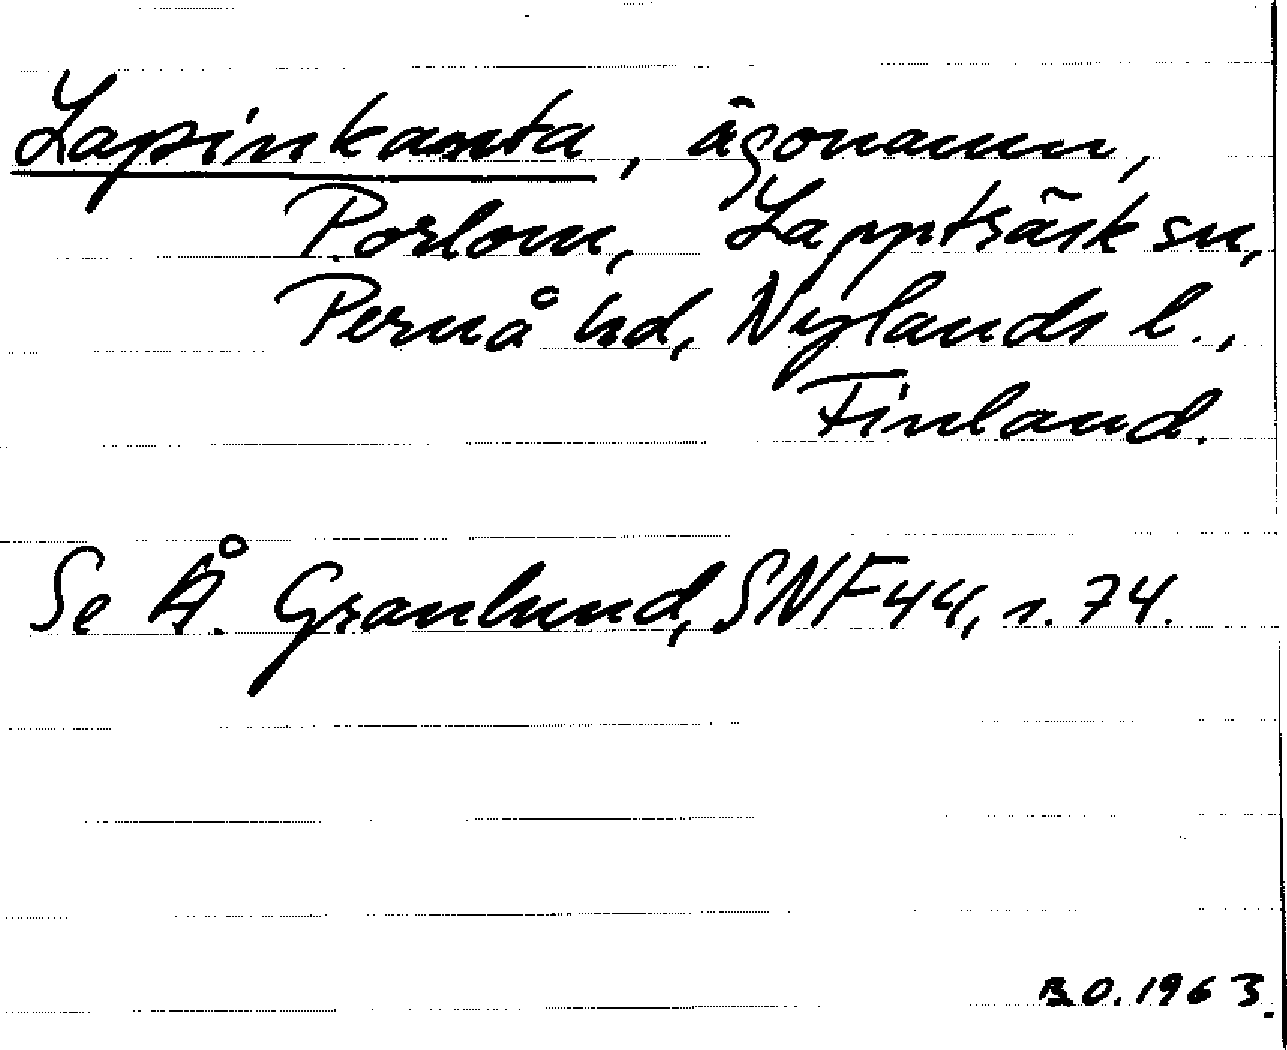 Lapinkanta, ägonamn,
Porlom, Lappträsk sn,
Pernå hd, Nylands l.,
Finland.
Se Å. Granlund, SNF 44, s. 74.
B.O. 1963.